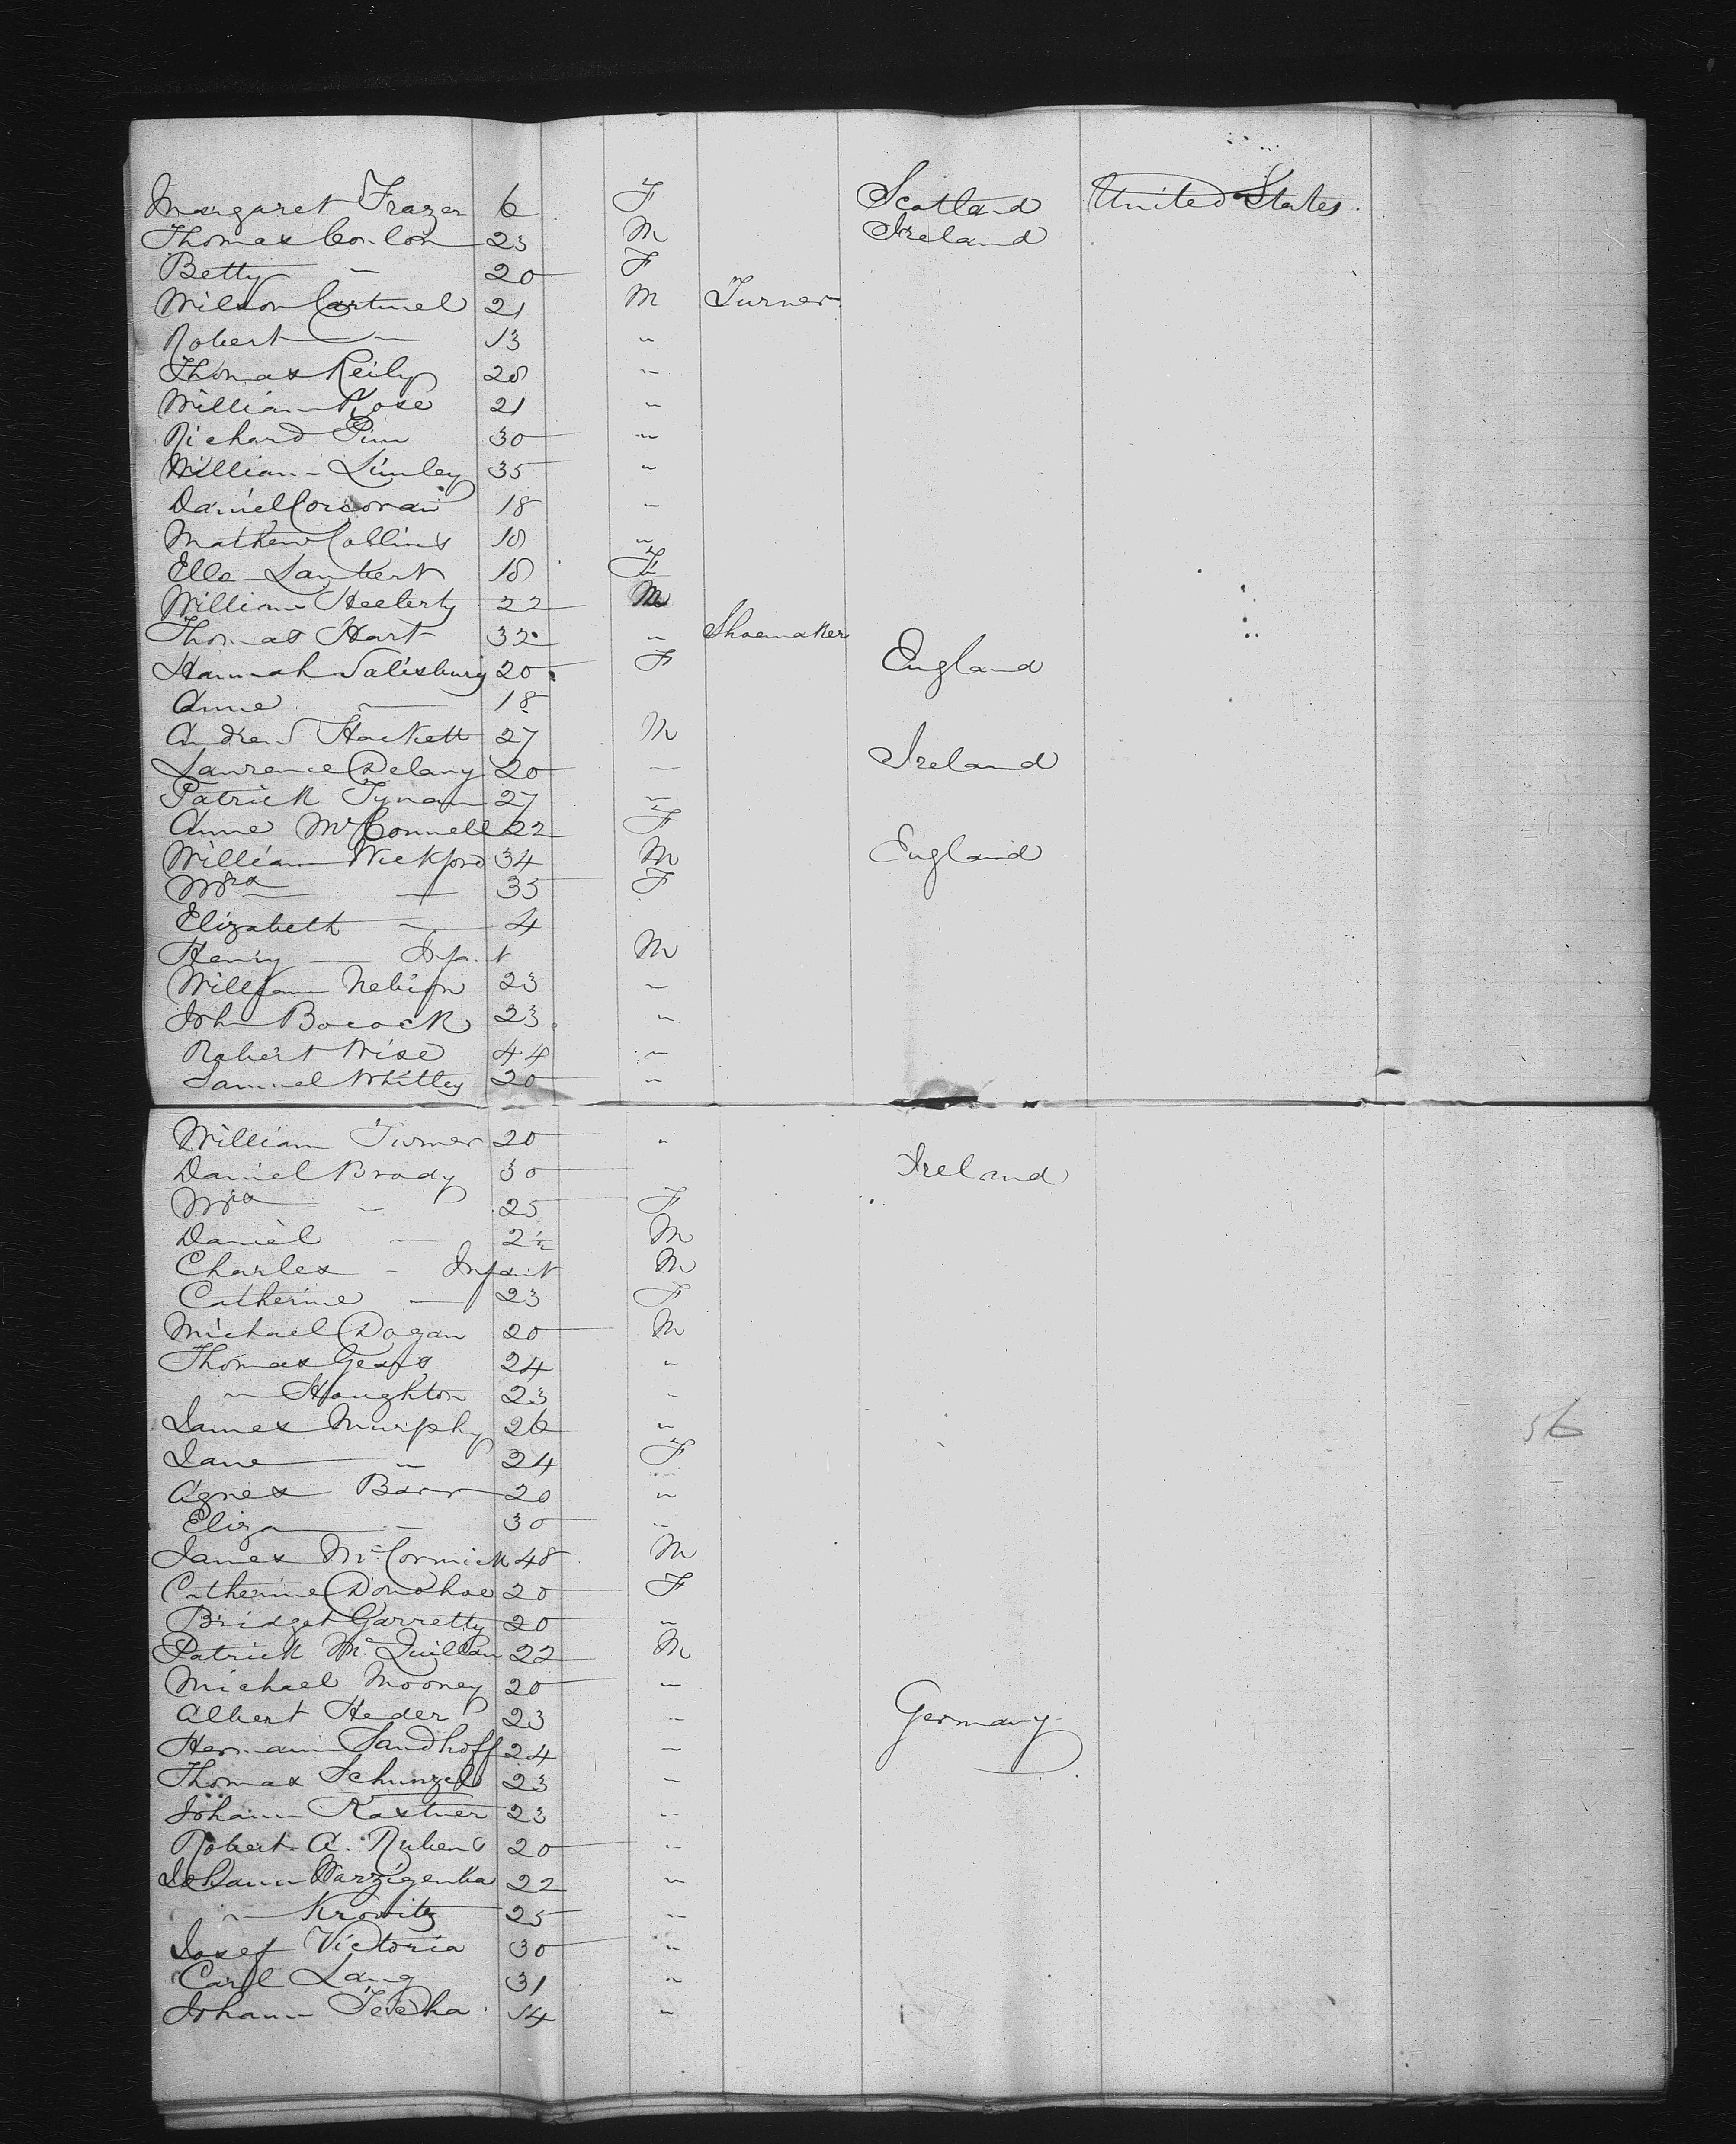 Margaret Frazer 6 F Scotland United States.
Thomas Conlon 23 M Ireland
Betty " 20 F
Wilson Cartmel 21 M Turner
Robert " 13 "
Thomas Reily 20 "
William Rose 21 "
Richard Pim 30 "
William Linley 35 "
Daniel Corcoran 18 "
Mathew Collins 18 "
Ellen Lambert 18 F
William 22 M
Thomas Hart 32 " Shoemaker
Hannah Salisbury 20 F England
Anne — 18
Andrew Hackett 27 M
Lawrence Delany 20 — Ireland
Patrick Tynan 27 "
Anne McConnell 22 F
William Wickford 34 M England
Mrs — 35 F
Elizabeth — 4
Henry — Infant M
William 23 "
John Bocock 23 "
Robert Wise 44 "
Samuel Whitley 20 "
William Turner 20 "
Daniel Brady 30 Ireland
Mrs " 25 F
Daniel — 2½ M
Charles - Infant M
Catherine — 23 F
Michael Dogan 20 M
Thomas 24 "
" Houghton 23 "
James Murphy 26 "
Jane " 24 F
Agnes Barr 20 "
Eliza — 30 "
James McCormick 48 M
Catherine Donohoe 20 F
Bridget Garretty 20 "
Patrick McQuillan 22 M
Michael Mooney 20 "
Albert Heder 23 " Germany
Hermann Sandhoff 24 "
Thomas 23 "
Johann Kastner 23 "
Robert A. Rubens 20 "
Johann 22 "
" Krowitz 25 "
Josef Victoria 30 "
Carl Lang 31 "
Johann 14 "
56